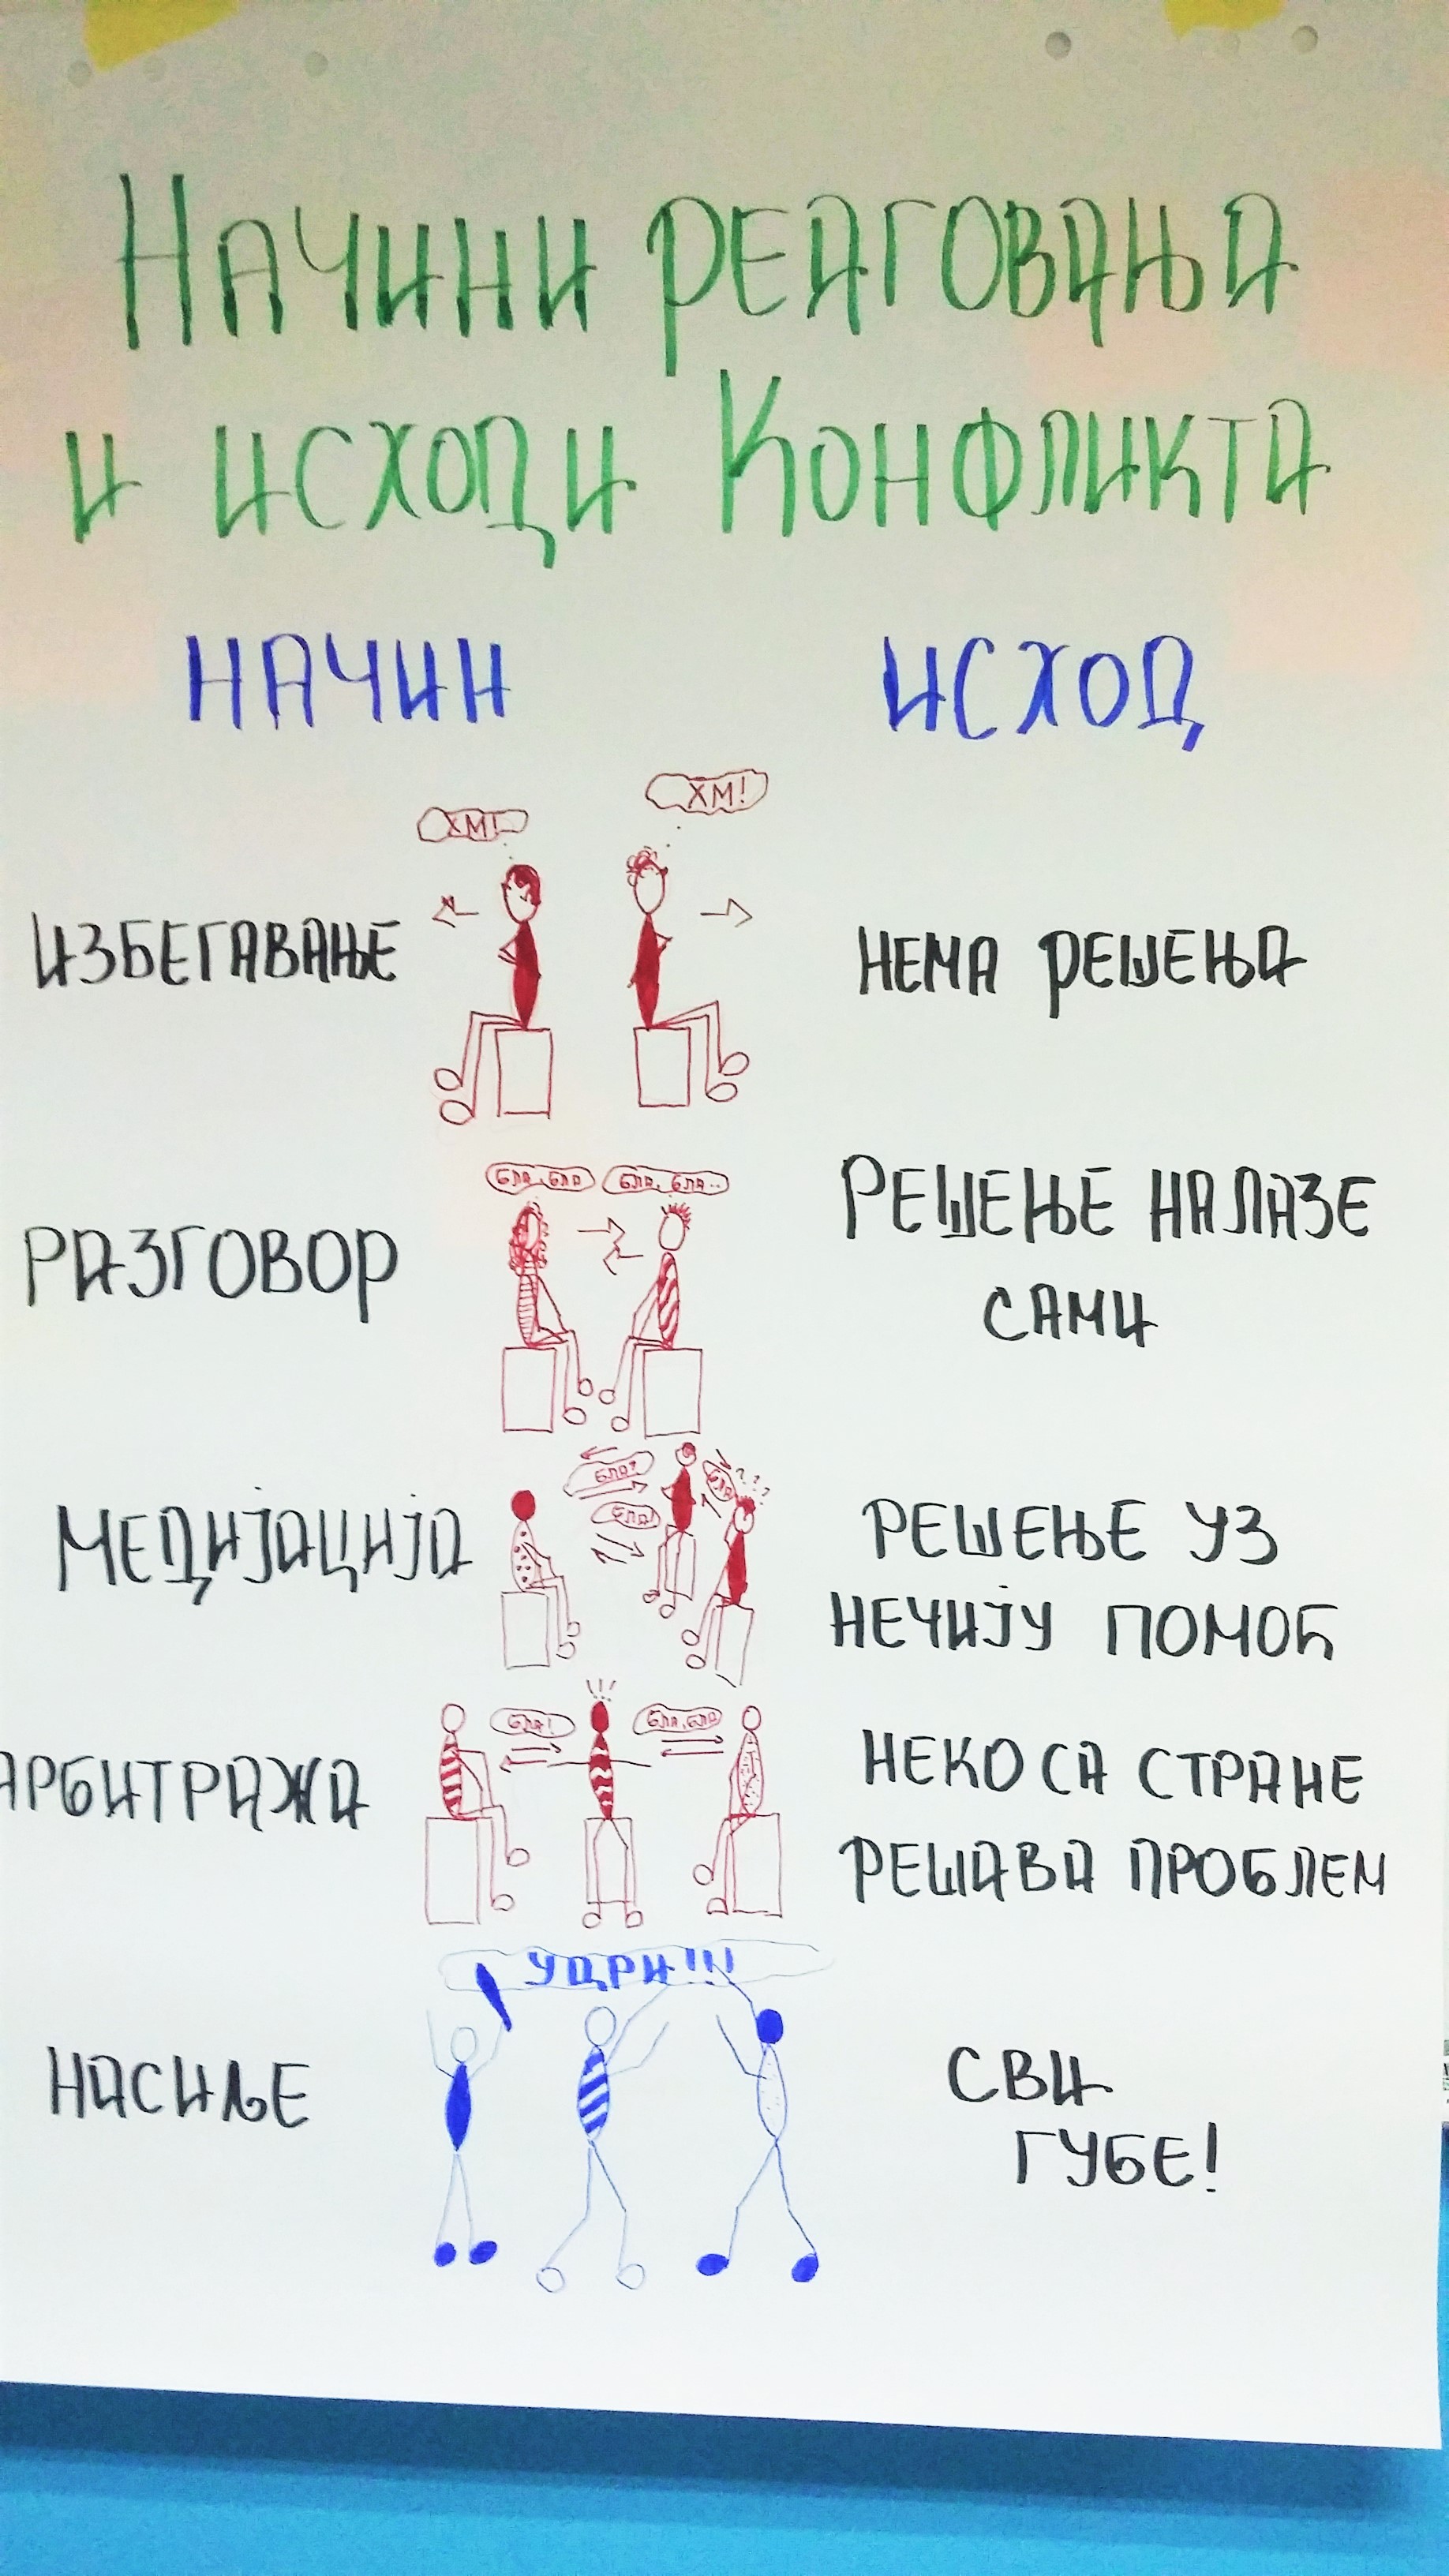 Начини реаговања
и исходи Конфликта
НАЧИН ИСХОД
ХМ! ХМ!
ИЗБЕГАВАЊЕ НЕМА РЕШЕЊА
БЛА, БЛА БЛА, БЛА..
РАЗГОВОР РЕШЕЊЕ НАЛАЗЕ
САМИ
БЛА? БЛА ???
БЛА!
МЕДИЈАЦИЈА РЕШЕЊЕ УЗ
НЕЧИЈУ ПОМОЋ
БЛА! БЛА, БЛА
АРБИТРАЖА НЕКО СА СТРАНЕ
РЕШАВА ПРОБЛЕМ
УДРИ!!!
НАСИЉЕ СВИ
ГУБЕ!